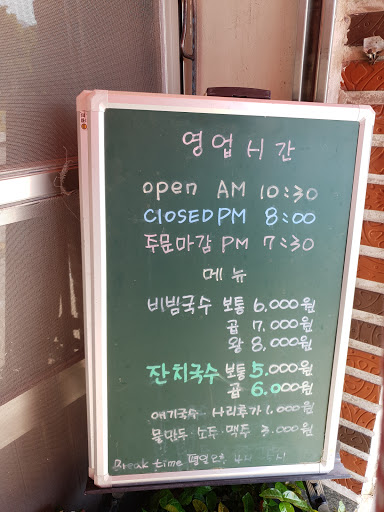 영업시간
open AM 10:30
CLOSED PM 8:00
주문마감 PM 7:30
메뉴
비빔국수 보통 6.000원
곱 7.000원
왕 8.000원
잔치국수 보통 5.000원
곱 6.000원
애기국수 사리추가 1.000원
물만두 소두 맥주 3.000원
Break time 평일 4시